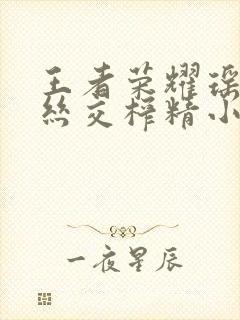 王者荣耀瑶
丝交榨精小
一夜星辰